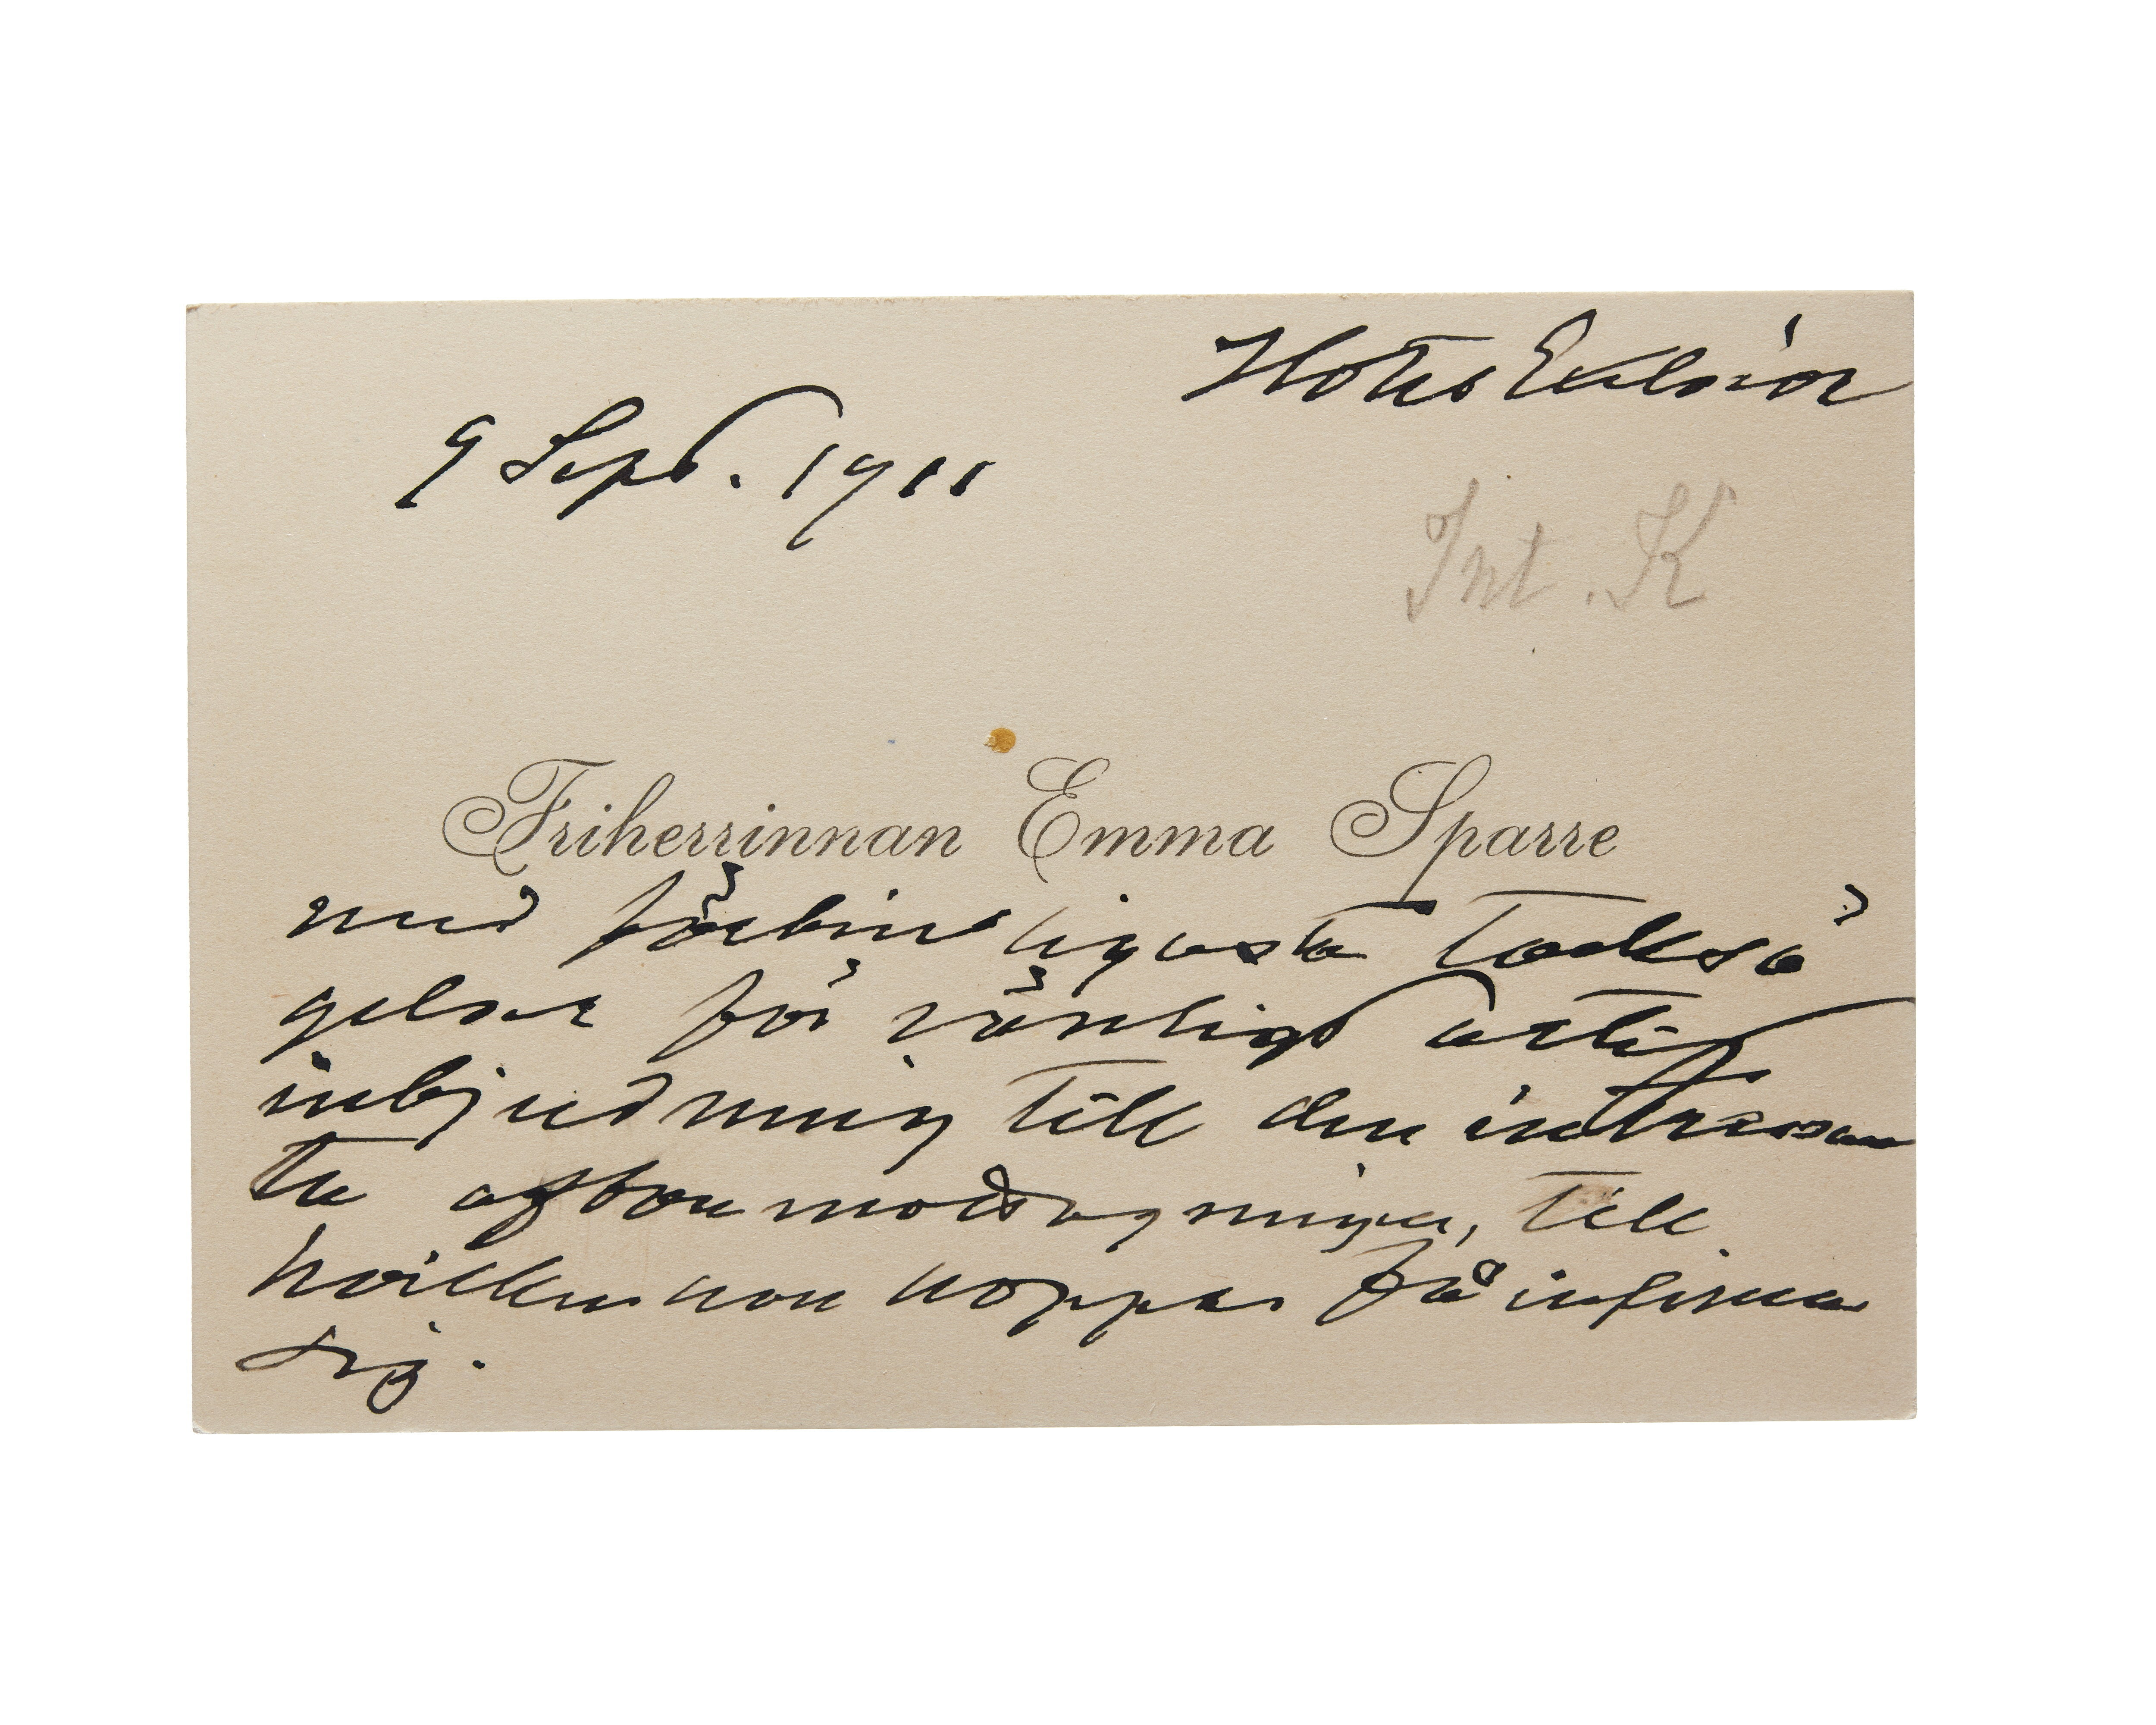 Hotel Excelsior
9 Sept. 1911
Int. K
Friherrinnan Emma Sparre
med förbindligaste tacksä
gelser för vänligt
inbjudning till den intressan
ta aftonmottagningen, till
hvilken hon hoppas få infinna
sig.